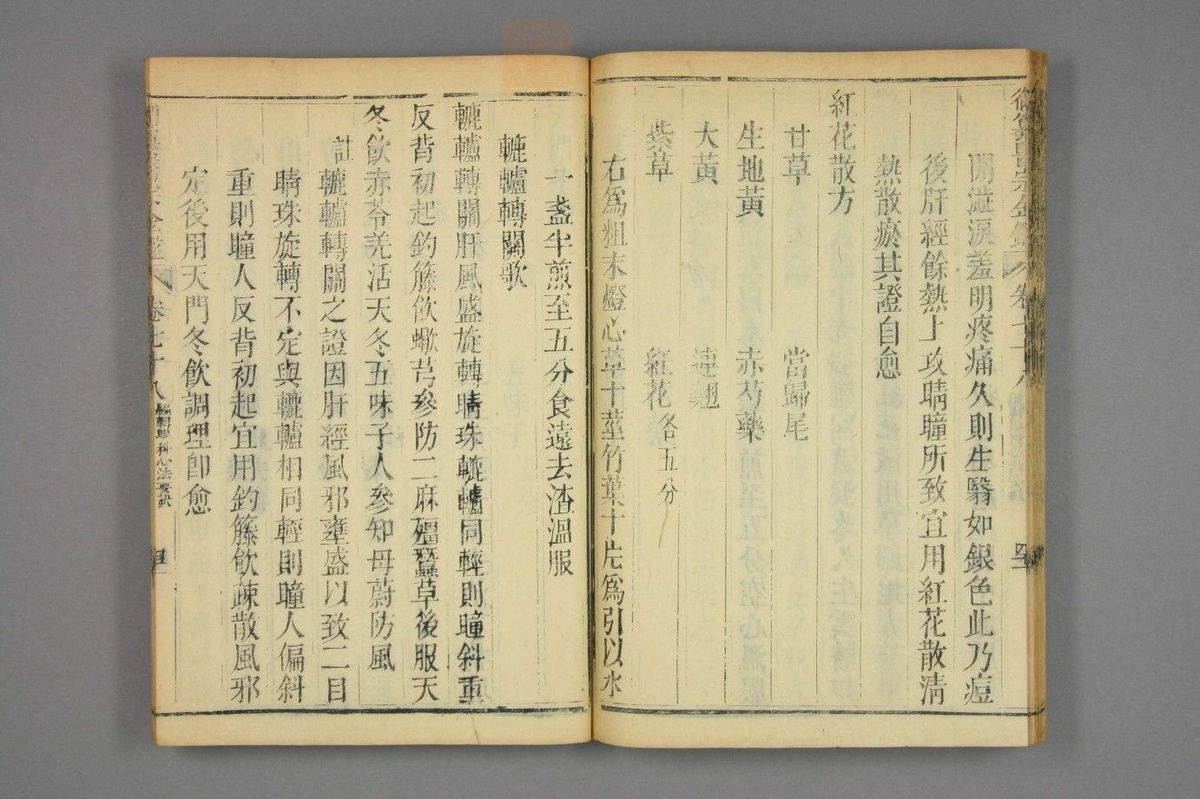 開澁淚羞明疼痛久則生翳如銀色此乃痘
後肝經餘熱上攻睛瞳所致宜用紅花散清
熱散瘀其證自愈
紅花散方
甘草 當歸尾
生地黃 赤芍藥
大黃 連翹
紫草 紅花各五分
右爲粗末燈心草十莖竹葉十片爲引以水
一盞半煎至五分食遠去渣溫服
轆轤轉關歌
轆轤轉關肝風盛旋轉睛珠轆轤同輕則瞳斜重
反背初起鈎籐飲蠍芎參防二麻殭蠶草後服天
冬飲赤苓羌活天冬五味子人參知母蔚防風
註 轆轤轉關之證因肝經風邪壅盛以致二目
睛珠旋轉不定與轆轤相同輕則瞳人偏斜
重則瞳人反背初起宜用鈎籐飲疎散風邪
定後用天門冬飲調理卽愈
卷七十八 編輯眼科心法要訣